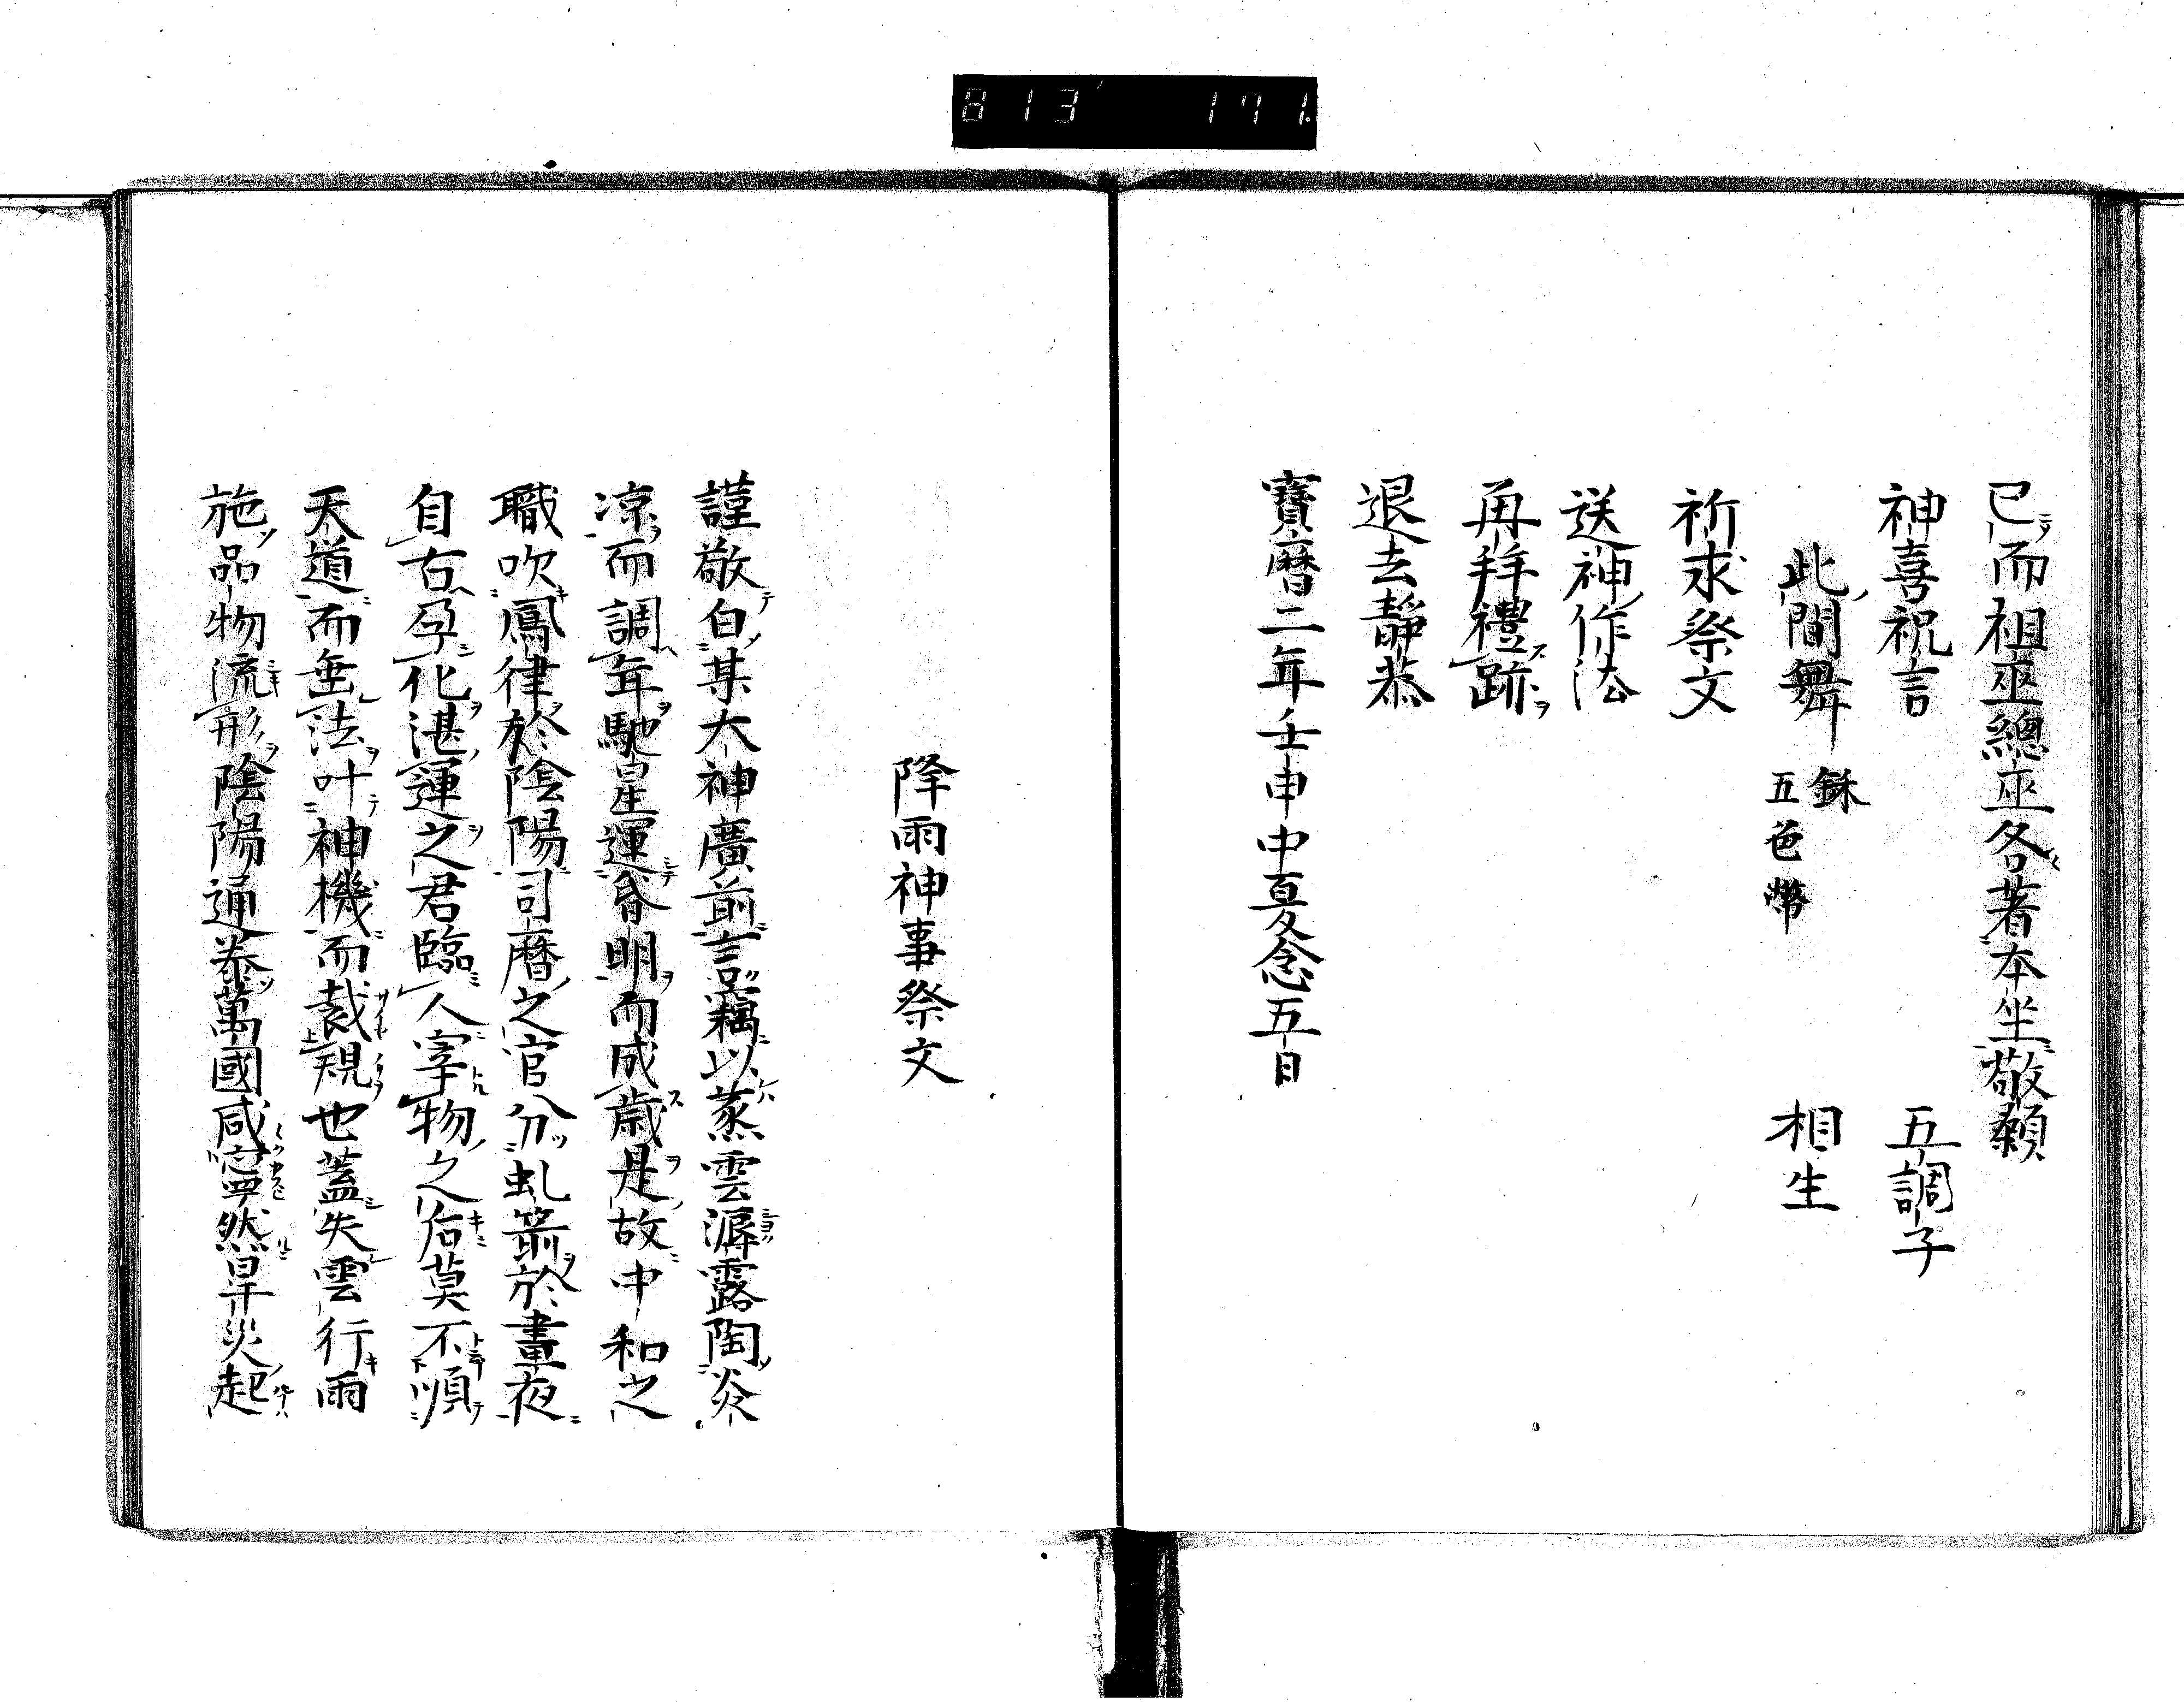 813 171
已而祖巫總巫各著本坐敬顙
神喜祝言 五調子
此間舞 鉌 五色幣 相生
祈求祭文
送神作法
再拜禮跡
退去靜恭
寶曆二年壬申中夏念五日
降雨神事祭文
謹敬白某大神廣前言竊以蒸雲潯露陶炎
凉而調年馳星運昏明而成歲是故中和之
職吹鳳律於陰陽司曆之官分虬箭於晝夜
自古孕化湛運之君臨人宰物之后莫不順
天道而垂法叶神機而裁規也蓋失雲行雨
施品物流形陰陽通泰萬國咸寧然旱災起